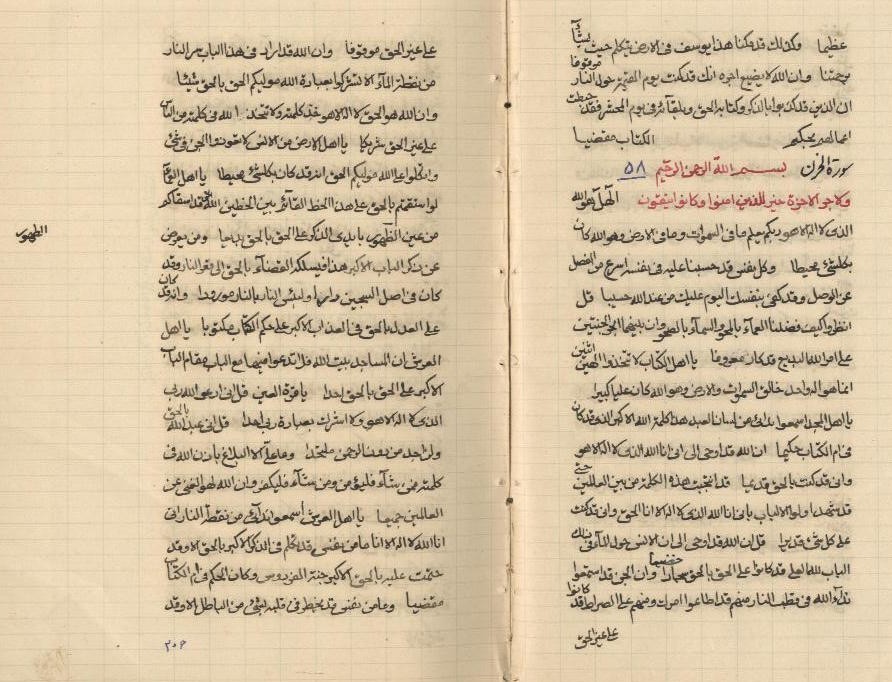 عظيما وكذلك قد مكنا هذا يوسف فى الارض يتكلم حيث يشآء
برحمتنا وان الله لا يضيع اجره انك قد كنت يوم القيمة حول النار موقوفا
ان الذين قد كذبوا بالذكر وكتابه الحق وبلقائه فى يوم المحشر فقد حبطت
اعمالهم بحكم الكتاب مقضيا
سورة الحزن بسم الله الرحمن الرحيم ٥٨
ولاجر الاخرة خير للذين امنوا وكانوا يتقون هو الله
الذى لا اله الا هو ربكم يعلم ما فى السموات وما فى الارض وهو الله كان
بكلشئ محيطا وكل نفس قد حسبنا عليه فى نفسه اسرع من الفصل
عن الوصل وقد كفى بنفسك اليوم عليك من عند الله حسيبا قل
انظروا كيف فضلنا العمآء بالمحو والسمآء بالصحو وان بينهما الجنتين
على امر الله البديع قد كان معروفا يا اهل الكتاب لا تتخذوا الهين اثنين
انما هو اله واحد خالق السموات والارض وهو الله كان عليا كبيرا
يا اهل المجد اسمعوا ندائى من لسان العبد هذا كلمة الله الاكبر الذى قد كان
فى ام الكتاب حكيما ان الله قد اوحى الى انى انا الله الذى لا اله الا هو
وانى قد كنت بالحق قديما قد انتجبت هذه الكلمة من بين العالمين حتى
قد شهد اولوا الالباب بانى انا الله الذى لا اله الا انا الحق وانى قد كنت
على كل شئ قديرا قل ان الله قد اوحى الى ان الانس حول المآء فى ذلك
الباب لله العلى قد كانوا على الحق بالحق سجادا خضيعا وان الجن قد استمعوا
ندآء الله فى قطب النار منهم قد اطاعوا امرك ومنهم على الصراط قد كانوا
على غير الحق
على غير الحق موقوفا وان الله قد اراد فى هذا الباب سر النار
من نقطة المآء الا تشركوا بعبادة الله موليكم الحق بالحق شيئا
وان الله هو الحق لا اله الا هو خذ كلمته ولا تتخذ الله فى كلمته من الناس
على غير الحق شريكا يا اهل الارض من الانس لا تقولوا الحق فى شئ
واتكلوا على الله موليكم الحق انه قد كان بكلشئ محيطا يا اهل العمآء
لو استقمتم بالحق على هذا الخط القائم بين الخطين الله قد اسقاكم
من عين الظهور بايدى الذكر على الحق بالحق بديعا ومن يعرض
الطهور
عن ذكر الباب الاكبر هذا فيسلكه القضآء بالحق الى قعر النار وقد كان
كان فى اصل السجين واردا ولبئس النار بالنار مورودا وانه قد
على العدل بالحق فى العذاب الاكبر على حكم الكتاب مكتوبا يا اهل
العرش ان المساجد بيت الله فلا تدعوا فيها مع الباب مقام الباب
الاكبر على الحق بالحق احدا يا قرة العين قل انى ادعو الله ربى
الذى لا اله الا هو ولا اشرك بعبادة ربى احدا قل انى عبد الله بالحق
ولن اجد من دون الرحمن ملتحدا وما على الا البلاغ باذن الله فى
كلمته فمن شآء فليؤمن ومن شآء فليكفر وان الله لهو الغنى عن
العالمين جميعا يا اهل العرش اسمعوا ندآئى من نقطة النار انى
انا الله لا اله الا انا ما من نفس قد تكلم فى الذكر الاكبر بالحق الا وقد
حتمت عليه بالحق الاكبر جنة الفردوس وكان الحكم فى ام الكتاب
مقضيا وما من نفس قد يخطر فى قلبه لشئ من الباطل الا وقد
٢٠٦